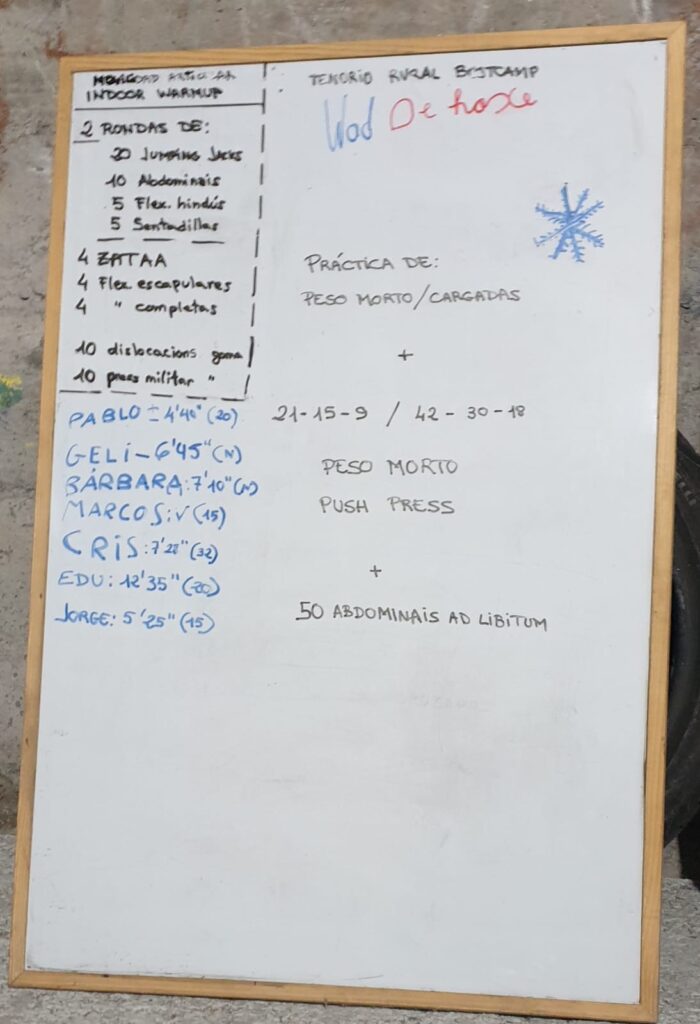 INDOOR WARMUP
2 RONDAS DE:
20 JUMPING JACKS
10 Abdominais
5 Flex. hindús
5 Sentadillas
4 Flex escapulares
4 " completas
10 dislocacions goma
10 press militar "
PABLO ± 4'40" (20)
GELI – 6'45" (N)
BÁRBARA: 7'10" (N)
MARCOS: V (15)
CRIS: 7'28" (32)
EDU: 12'35" (20)
JORGE: 5'25" (15)
TENORIO RURAL BOOTCAMP
Wod De hoxe
PRÁCTICA DE:
PESO MORTO/CARGADAS
+
21-15-9 / 42-30-18
PESO MORTO
PUSH PRESS
+
50 ABDOMINAIS AD LIBITUM